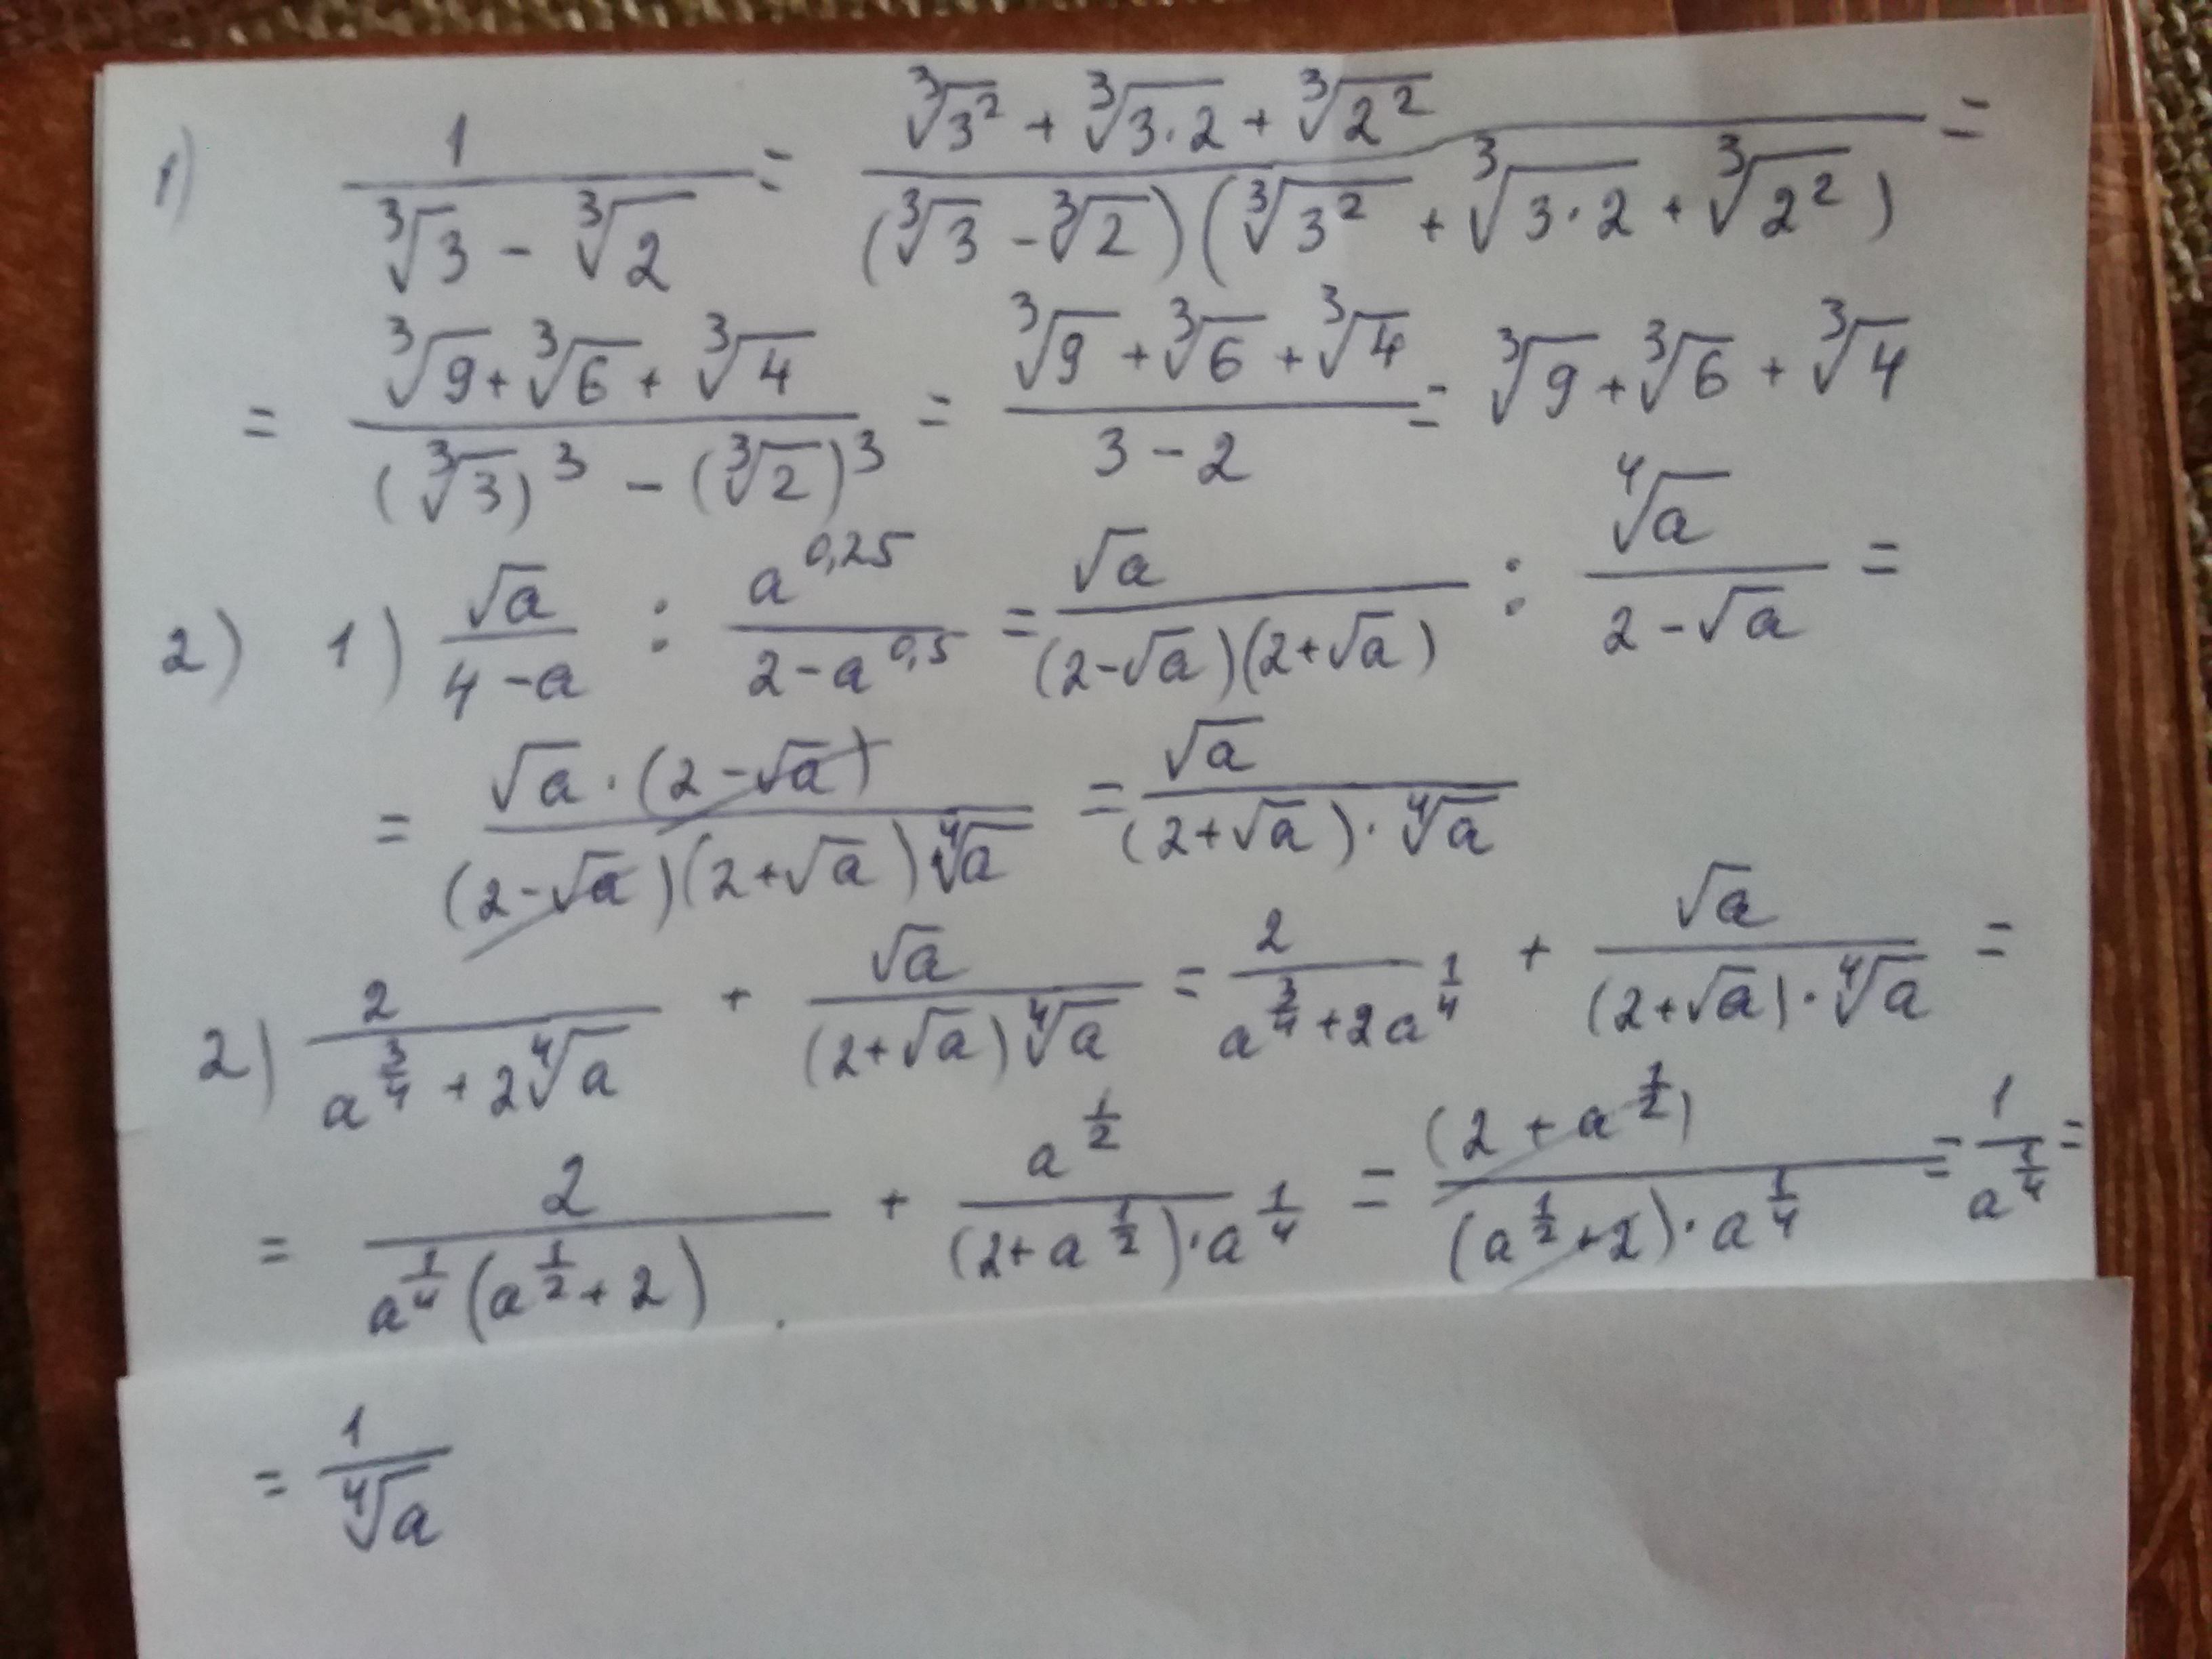 1) \frac{1}{\sqrt[3]{3} - \sqrt[3]{2}} = \frac{\sqrt[3]{3^2} + \sqrt[3]{3 \cdot 2} + \sqrt[3]{2^2}}{(\sqrt[3]{3} - \sqrt[3]{2})(\sqrt[3]{3^2} + \sqrt[3]{3 \cdot 2} + \sqrt[3]{2^2})} =
= \frac{\sqrt[3]{9} + \sqrt[3]{6} + \sqrt[3]{4}}{(\sqrt[3]{3})^3 - (\sqrt[3]{2})^3} = \frac{\sqrt[3]{9} + \sqrt[3]{6} + \sqrt[3]{4}}{3 - 2} = \sqrt[3]{9} + \sqrt[3]{6} + \sqrt[3]{4}
2) 1) \frac{\sqrt{a}}{4 - a} : \frac{a^{0,25}}{2 - a^{0,5}} = \frac{\sqrt{a}}{(2 - \sqrt{a})(2 + \sqrt{a})} : \frac{\sqrt[4]{a}}{2 - \sqrt{a}} =
= \frac{\sqrt{a} \cdot (2 - \sqrt{a})}{(2 - \sqrt{a})(2 + \sqrt{a}) \sqrt[4]{a}} = \frac{\sqrt{a}}{(2 + \sqrt{a}) \cdot \sqrt[4]{a}}
2) \frac{2}{a^{\frac{3}{4}} + 2\sqrt[4]{a}} + \frac{\sqrt{a}}{(2 + \sqrt{a}) \sqrt[4]{a}} = \frac{2}{a^{\frac{3}{4}} + 2a^{\frac{1}{4}}} + \frac{\sqrt{a}}{(2 + \sqrt{a}) \cdot \sqrt[4]{a}} =
= \frac{2}{a^{\frac{1}{4}}(a^{\frac{1}{2}} + 2)} + \frac{a^{\frac{1}{2}}}{(2 + a^{\frac{1}{2}}) \cdot a^{\frac{1}{4}}} = \frac{(2 + a^{\frac{1}{2}})}{(a^{\frac{1}{2}} + 2) \cdot a^{\frac{1}{4}}} = \frac{1}{a^{\frac{1}{4}}} =
= \frac{1}{\sqrt[4]{a}}